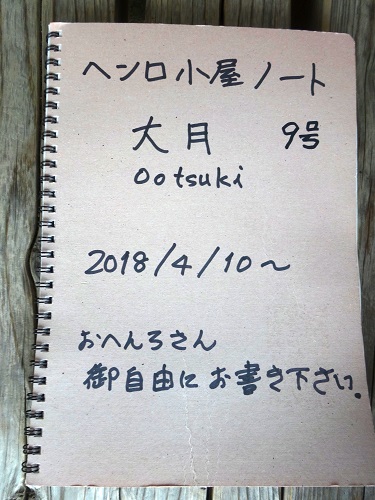 ヘンロ小屋ノート
大月 9号
Ootsuki
2018/4/10~
おへんろさん
御自由にお書き下さい。